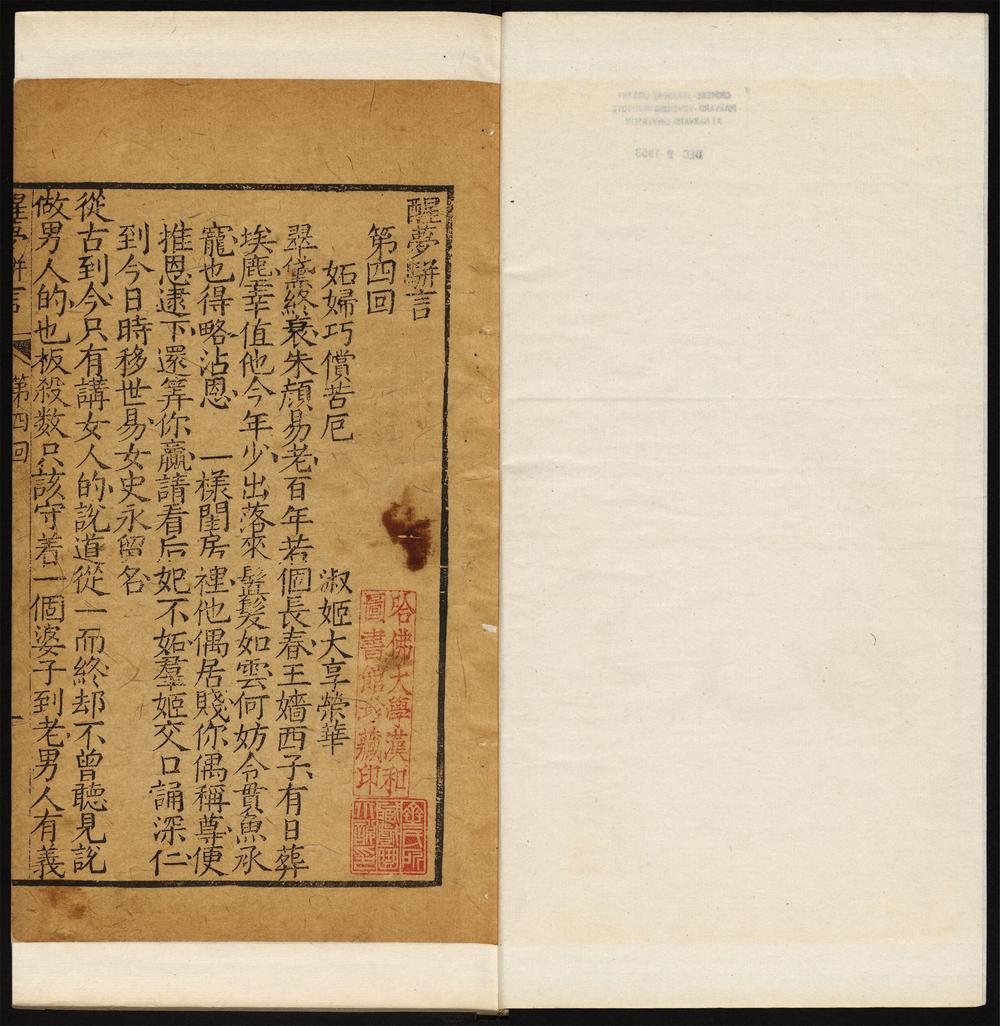 醒夢駢言
第四回
妬婦巧償苦厄　淑姬大享榮華
翠黛終衰朱顔易老百年若個長春王嬙西子有日葬
埃塵幸值他今年少出落來鬓髮如雲何妨令貫魚承
寵也得略沾恩　一樣閨房裡他偶居賤你偶稱尊便
推恩逮下還筭你贏請看后妃不妬羣姬交口誦深仁
到今日時移世易女史永留名
從古到今只有講女人的說道從一而終却不曾聽見說
做男人的也板殺数只該守着一個婆子到老男人有義
醒夢駢言　第四回　一
哈佛大學漢和
圖書館珍藏印
DEC 8 1953